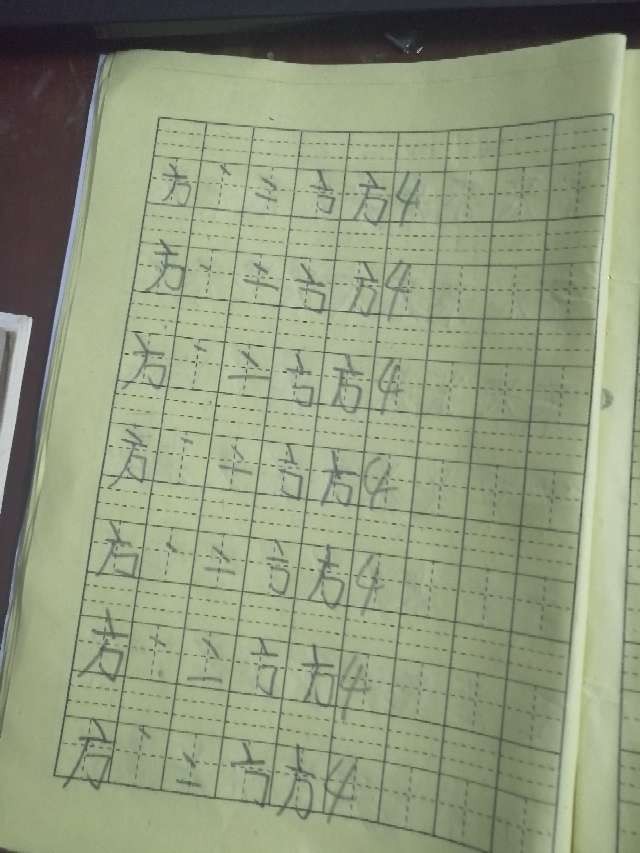 方 丶 亠 方 4
方 丶 亠 方 4
方 丶 亠 方 4
方 丶 亠 方 4
方 丶 亠 方 4
方 丶 亠 方 4
方 丶 亠 方 4